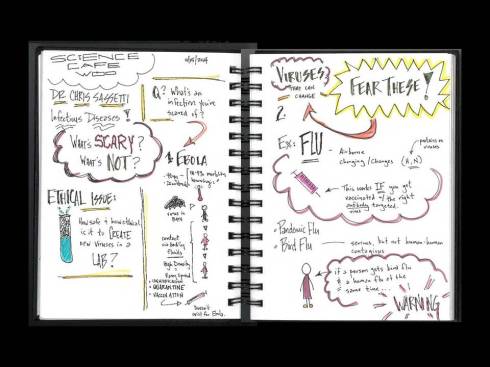 SCIENCE
CAFE
WOO
DR. CHRIS SASSETTI
Infectious Diseases!
WHAT'S SCARY?
WHAT'S NOT?
ETHICAL ISSUE:
How safe & how ethical
is it to CREATE
new viruses in a
LAB?
Q? What's an
infection you're
scared of?
1. EBOLA
virus in
BATS
contact
w/ bodily
fluids
High Density
QUARANTINE
VACCINATION
Doesn't
exist for Ebola.
VIRUSES
THAT CAN
CHANGE
FEAR THESE!
2.
Ex: FLU
Airborne
changing/changes (H,N)
proteins on
viruses
This works IF you get
vaccinated w/ the right
antibody targeted.
virus
Pandemic Flu
Bird Flu
serious, but not human-human
contagious
if a person gets bird flu
& a human flu at the
same time...
WARNING